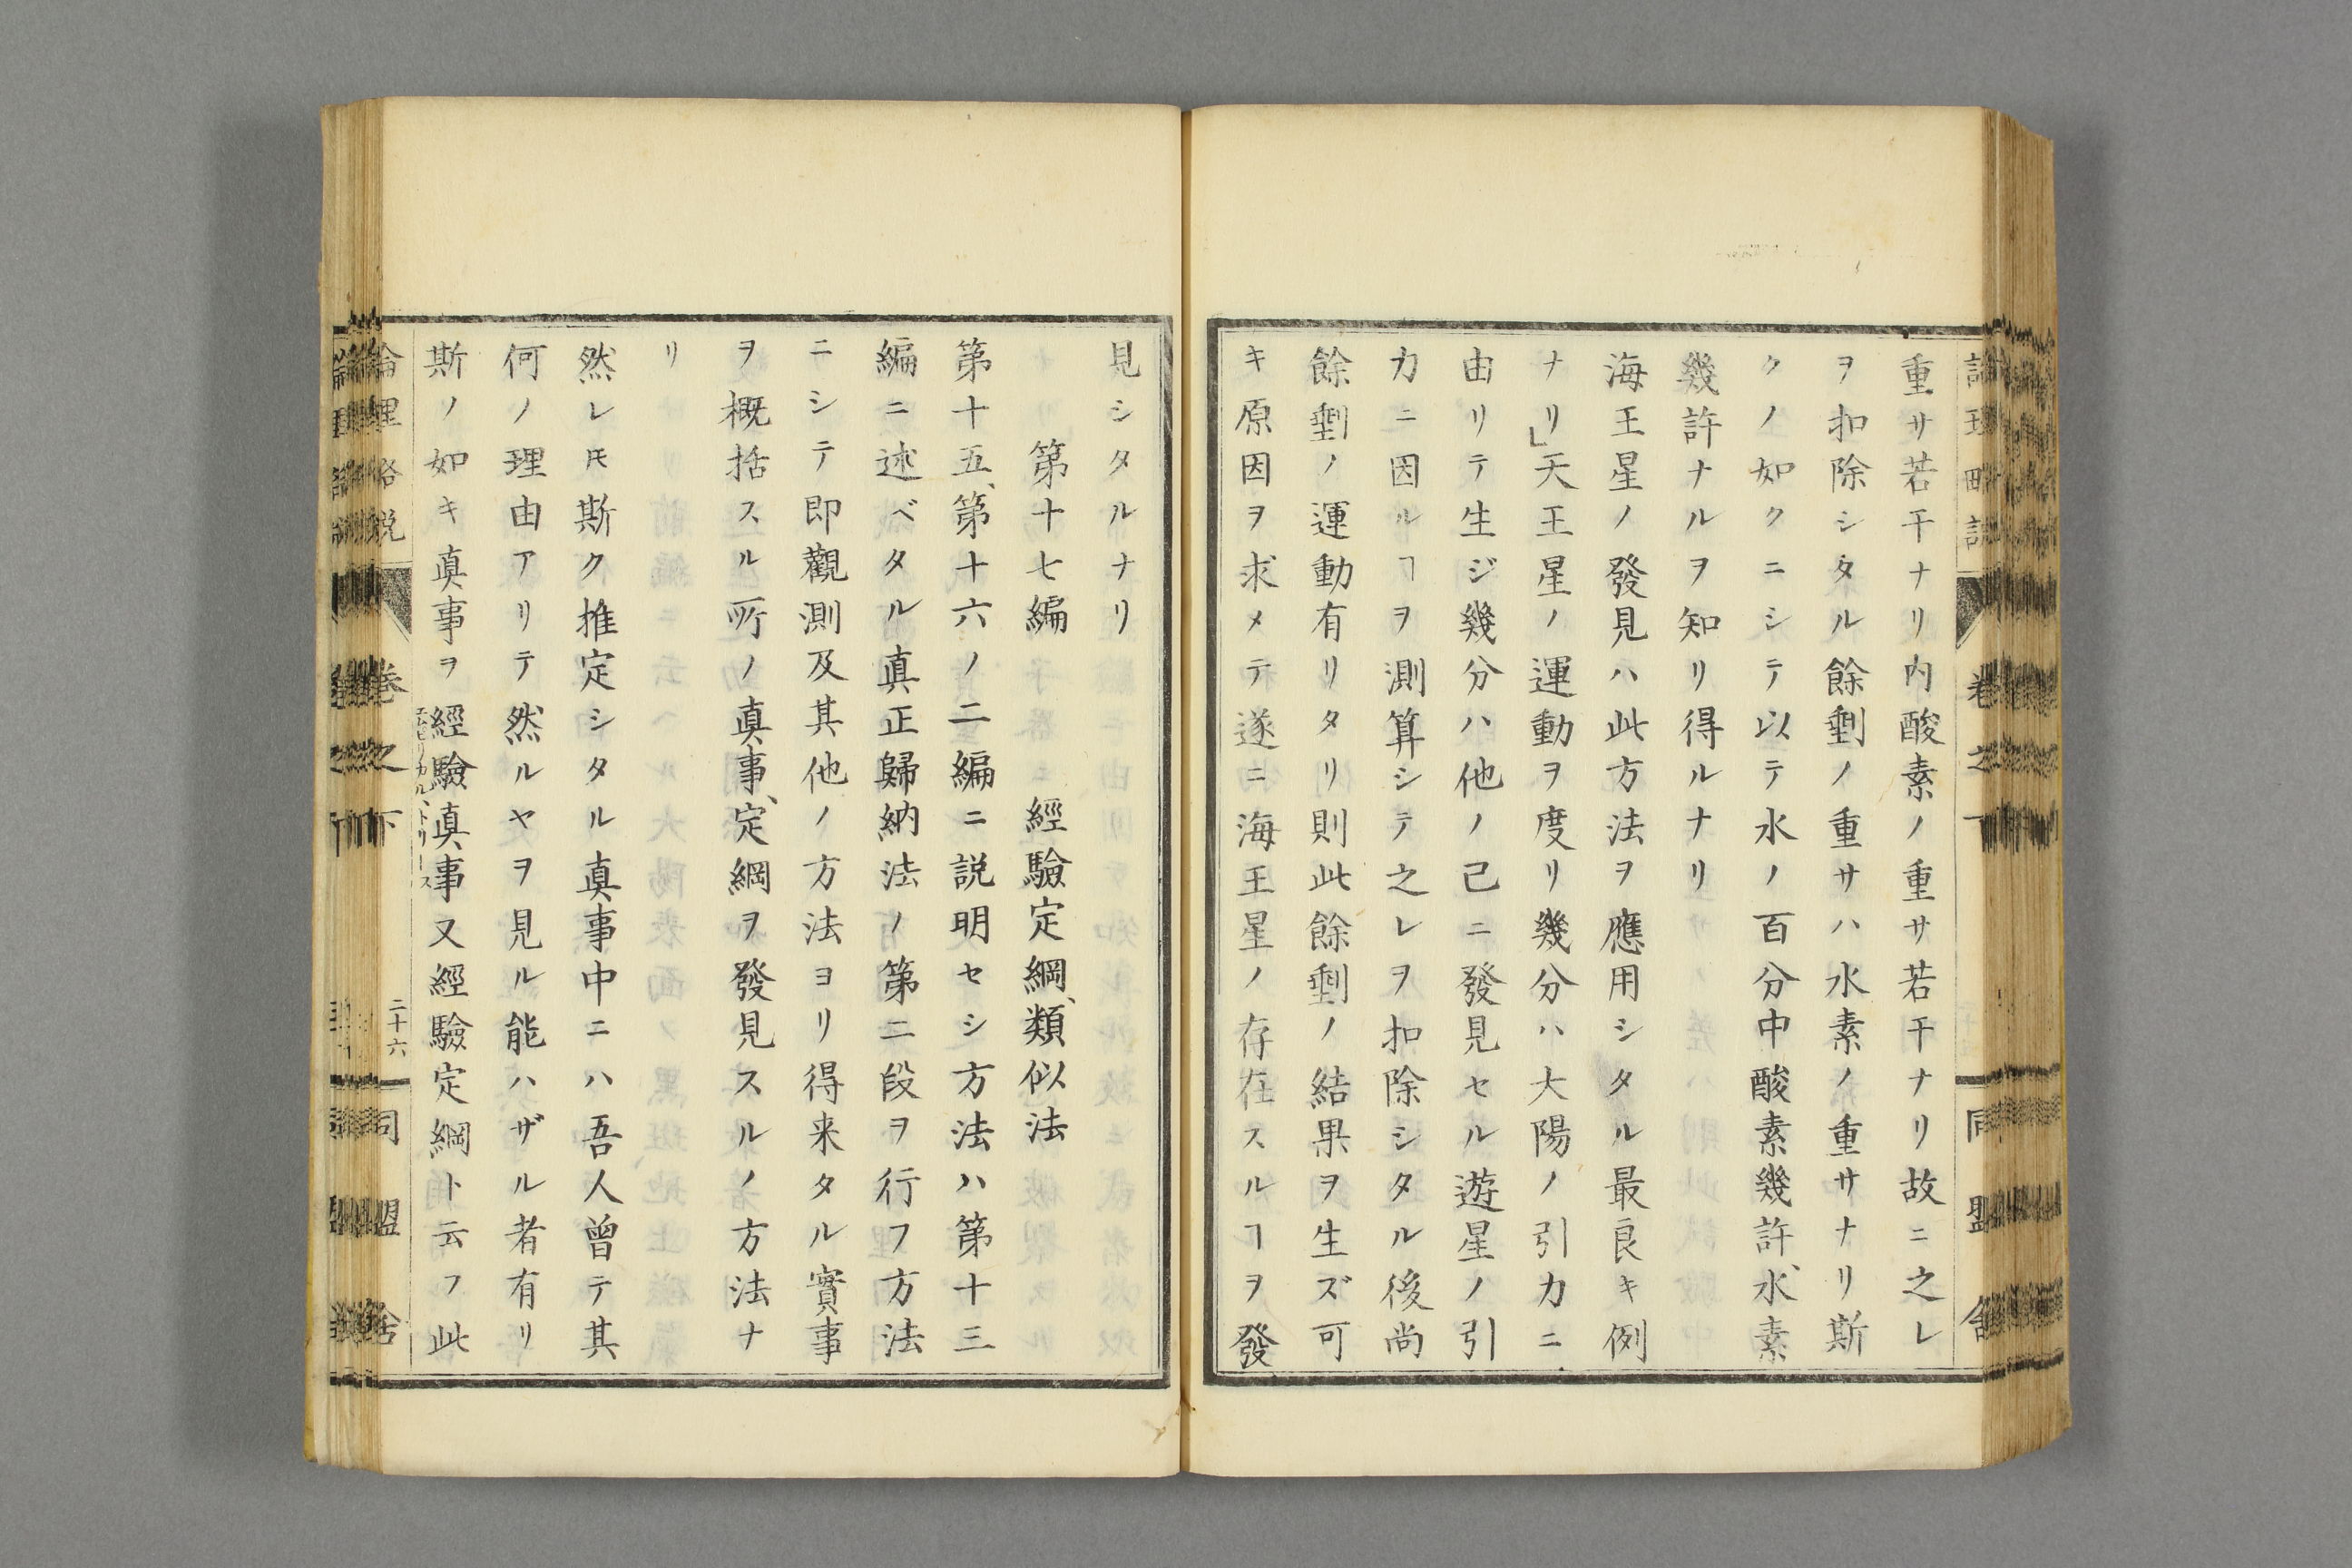 重サ若干ナリ内酸素ノ重サ若干ナリ故ニ之レ
ヲ扣除シタル餘剰ノ重サハ水素ノ重サナリ斯
クノ如クニシテ以テ水ノ百分中酸素幾許、水素
幾許ナルヲ知リ得ルナリ
海王星ノ發見ハ此方法ヲ應用シタル最良キ例
ナリ」天王星ノ運動ヲ度リ幾分ハ大陽ノ引力ニ
由リテ生ジ幾分ハ他ノ已ニ發見セル遊星ノ引
力ニ因ルヿヲ測算シテ之レヲ扣除シタル後尚
餘剰ノ運動有リタリ則此餘剰ノ結果ヲ生ズ可
キ原因ヲ求メテ遂ニ海王星ノ存在スルヿヲ發
見シタルナリ
第十七編 經驗定綱、類似法
第十五、第十六ノ二編ニ説明セシ方法ハ第十三
編ニ述ベタル真正歸納法ノ第二段ヲ行フ方法
ニシテ即觀測及其他ノ方法ヨリ得来タル實事
ヲ概括スル所ノ真事、定綱ヲ發見スルノ方法ナ
リ
然レ𪜈斯ク推定シタル真事中ニハ吾人曾テ其
何ノ理由アリテ然ルヤヲ見ル能ハザル者有リ
斯ノ如キ真事ヲ經驗真事又經驗定綱ト云フ此
エムピリカル、トリース
論理略説 卷之下 二十六 同盟舎